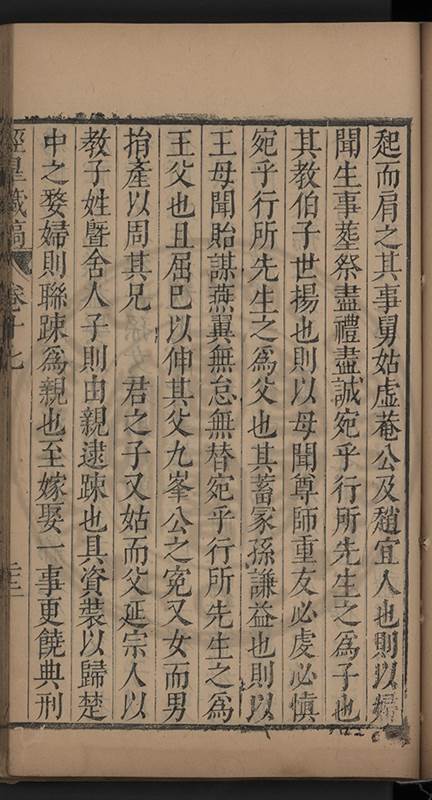 起而肩之其事舅姑虛菴公及趙宜人也則以婦
聞生事塟祭盡禮盡誠宛乎行所先生之為子也
其教伯子世揚也則以母聞尊師重友必虔必慎
宛乎行所先生之為父也其蓄冢孫謙益也則以
王母聞貽謀燕翼無怠無替宛乎行所先生之為
王父也且屈巳以伸其父九峯公之寃又女而男
捐產以周其兄 君之子又姑而父延宗人以
教子姓曁舍人子則由親逮踈也具資裝以歸楚
中之婺婦則聯踈為親也至嫁娶一事更饒典刑
經皐藏稿 卷十七 三二